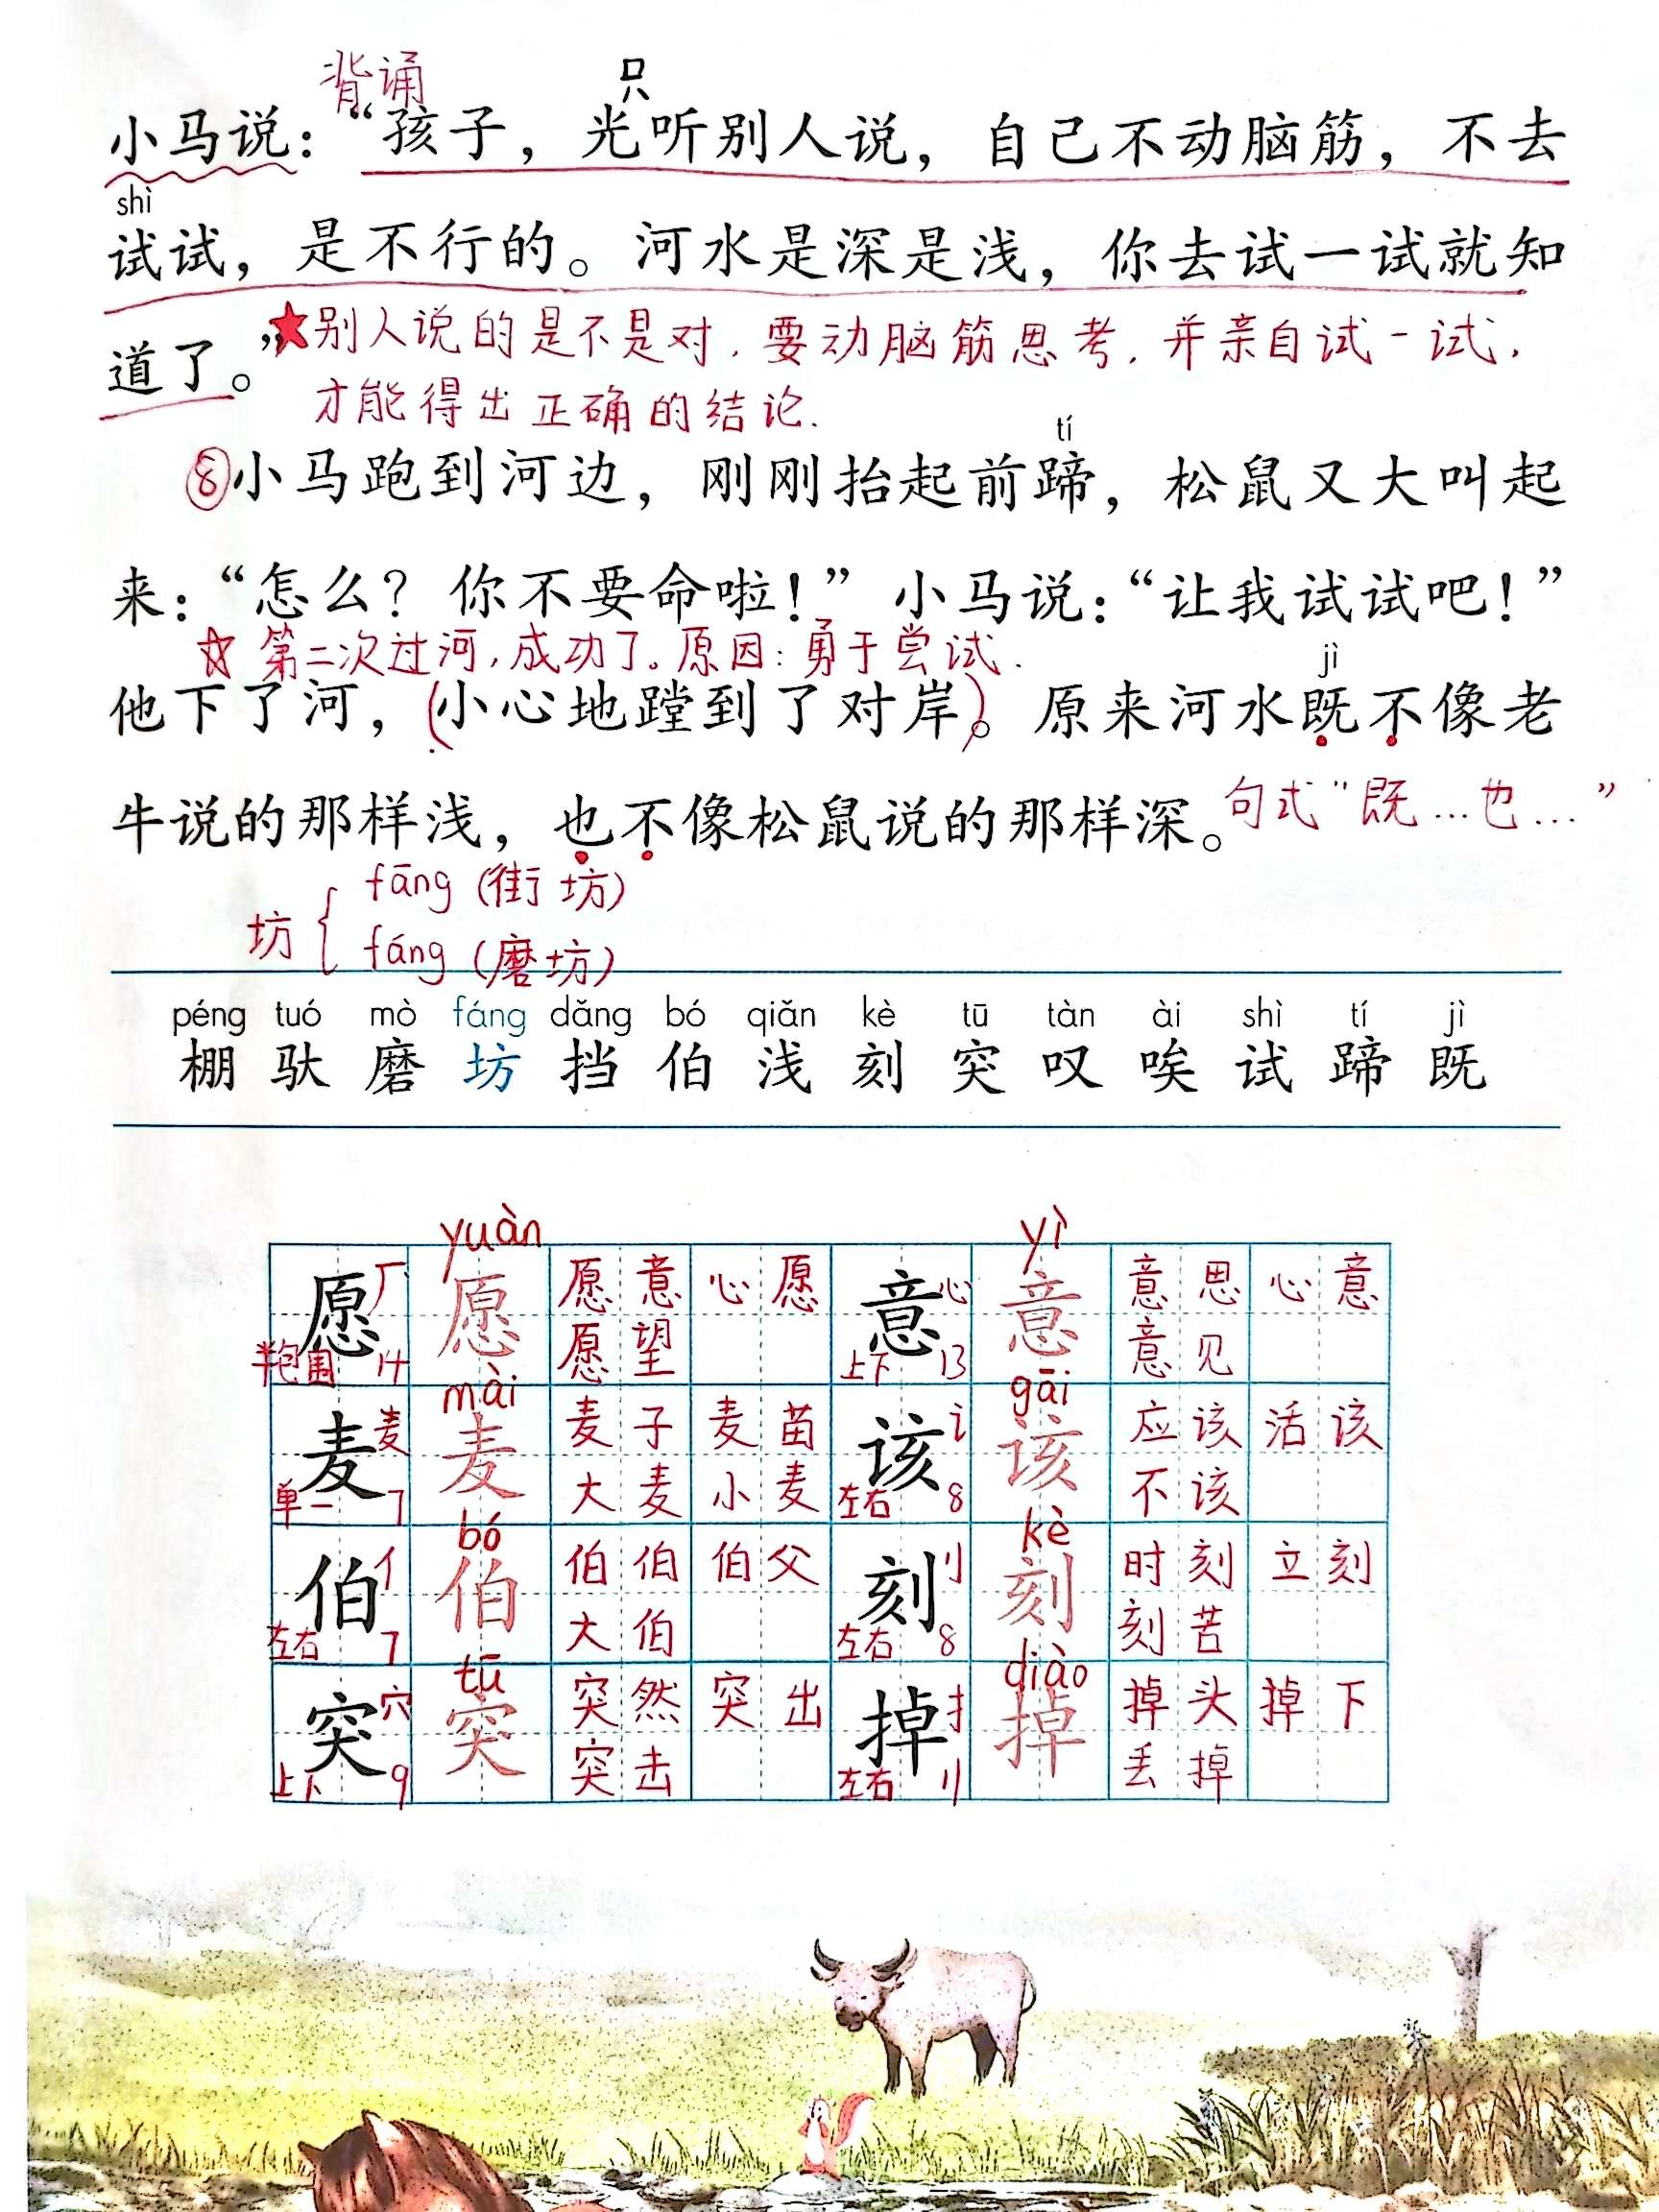 背诵 只
小马说：“孩子，光听别人说，自己不动脑筋，不去
shì
试试，是不行的。河水是深是浅，你去试一试就知
道了。”
★别人说的是不是对，要动脑筋思考，并亲自试一试，
才能得出正确的结论.
tí
⑧小马跑到河边，刚刚抬起前蹄，松鼠又大叫起
来：“怎么？你不要命啦！”小马说：“让我试试吧！”
☆第二次过河，成功了。原因：勇于尝试.
jì
他下了河，(小心地蹚到了对岸)。原来河水既不像老
牛说的那样浅，也不像松鼠说的那样深。
句式“既…也…”
坊 { fāng (街坊)
fáng (磨坊)
péng tuó mò fáng dǎng bó qiǎn kè tū tàn ài shì tí jì
棚 驮 磨 坊 挡 伯 浅 刻 突 叹 唉 试 蹄 既
yuàn yì
愿 厂 愿 愿意 心愿 意 心 意 意思 心意
半包围 14 愿望 上下 13 意见
mài gāi
麦 麦 麦 麦子 麦苗 该 讠 该 应该 活该
单一 7 大麦 小麦 左右 8 不该
bó kè
伯 亻 伯 伯伯 伯父 刻 刂 刻 时刻 立刻
左右 7 大伯 左右 8 刻苦
tū diào
突 穴 突 突然 突出 掉 扌 掉 掉头 掉下
上下 9 突击 左右 11 丢掉